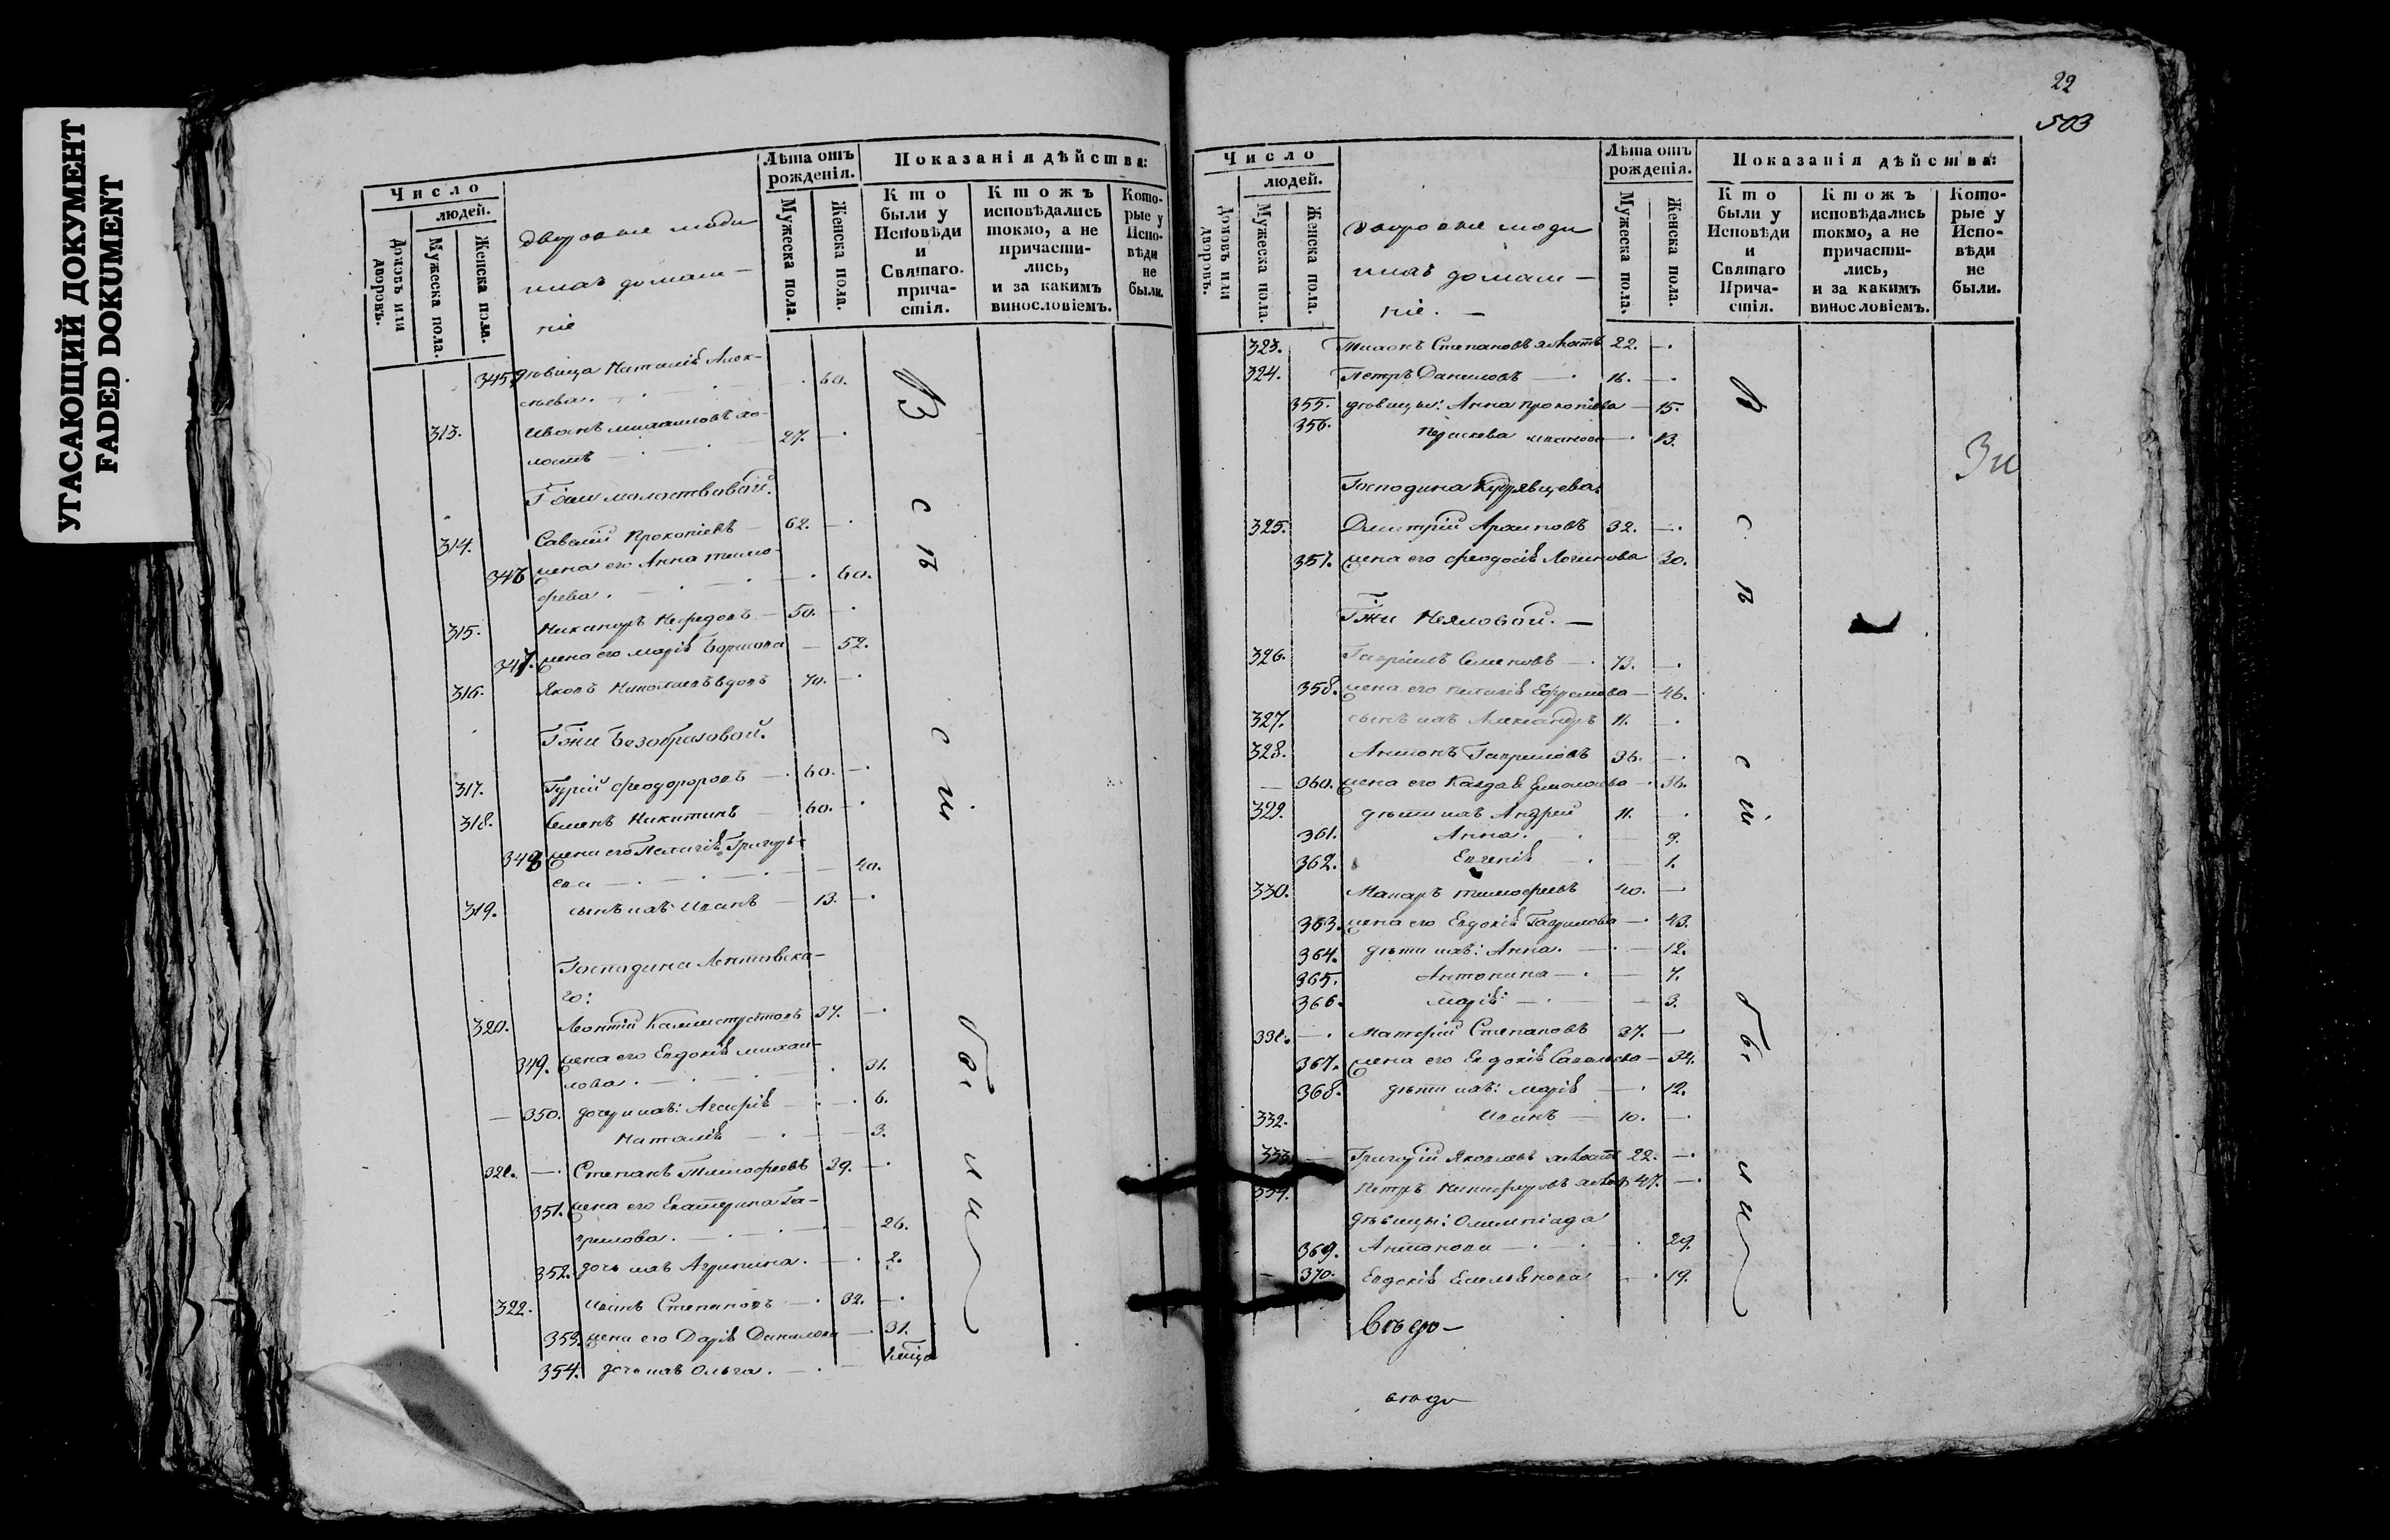 УГАСАЮЩИЙ ДОКУМЕНТ
FADED DOKUMENT
Число
людей.
Домовъ или дворовъ.
Мужеска пола.
Женска пола.
дворовые люди
ихъ домаш-
ніе
Лѣта отъ рожденія.
Мужеска пола.
Женска пола.
Показанія дѣйства:
Кто были у Исповѣди и Святаго прича-стія.
Ктожъ исповѣдались токмо, а не причасти-лись, и за какимъ винословіемъ.
Кото-рые у Испо-вѣди не были.
345 дѣвица Наталія Алек-
сѣева. 60.
313. Иванъ Михаиловъ хо-
лостъ 27.
Гжи Молоствовой.
314. Савелій Прокопіевъ 62.
346 жена его Анна Тимо-
феева. 60.
315. Никаноръ Нефедовъ 50.
347. жена его Марія Борисова 52.
316. Яковъ Николаевъ вдовъ 70.
Гжи Безобразовой.
317. Гурій Феодоровъ 60.
318. Семенъ Никитинъ 60.
348 жена его Пелагія Григорь-
ева 40.
319. сынъ ихъ Иванъ 13.
Господина Лентовска-
го:
320. Леонтій Калистратовъ 37.
349. жена его Евдокія Михаи-
лова. 31.
350. дочери ихъ: Агафія 6.
Наталія 3.
321. Степанъ Тимофеевъ 39.
351. жена его Екатерина Га-
врилова. 26.
352. дочь ихъ Агрипина. 2.
322. Иванъ Степановъ 32.
353. жена его Дарія Данилова 31.
354. дочь ихъ Ольга.
В с ѣ с і и б ы л и
22
503
Число
людей.
Домовъ или дворовъ.
Мужеска пола.
Женска пола.
дворовые люди
ихъ домаш-
ніе.
Лѣта отъ рожденія.
Мужеска пола.
Женска пола.
Показанія дѣйства:
Кто были у Исповѣди и Святаго Прича-стія.
Ктожъ исповѣдались токмо, а не причасти-лись, и за какимъ винословіемъ.
Кото-рые у Испо-вѣди не были.
323. Тихонъ Степановъ холостъ 22.
324. Петръ Даниловъ 16.
355. дѣвицы: Анна Прокопіева 15.
356. Параскева Иванова 13.
Господина Кудрявцева.
325. Дмитрій Архиповъ 32.
357. жена его Феодосія Логинова 30.
Гжи Нееловой.
326. Гавріилъ Семеновъ 73.
358. жена его Пелагія Ефремова 46.
327. сынъ ихъ Александръ 11.
328. Антонъ Гавриловъ 36.
360. жена его Клавдія Ермолаева 36.
329. дѣти ихъ Андрей 11.
361. Анна. 9.
362. Евгенія 1.
330. Макаръ Тимофеевъ 40.
363. жена его Евдокія Гаврилова 43.
364. дѣти ихъ: Анна. 12.
365. Антонина 7.
366. Марія: 3.
331. Матфій Степановъ 37.
367. жена его Евдокія Савельева 34.
368. дѣти ихъ: Марія 12.
332. Иванъ 10.
333. Григорій Яковлевъ холостъ 22.
334. Петръ Никифоровъ холост 47.
дѣвицы: Олимпіада
369. Антонова 29.
370. Евдокія Емельянова 19.
В с ѣ с і и б ы л и